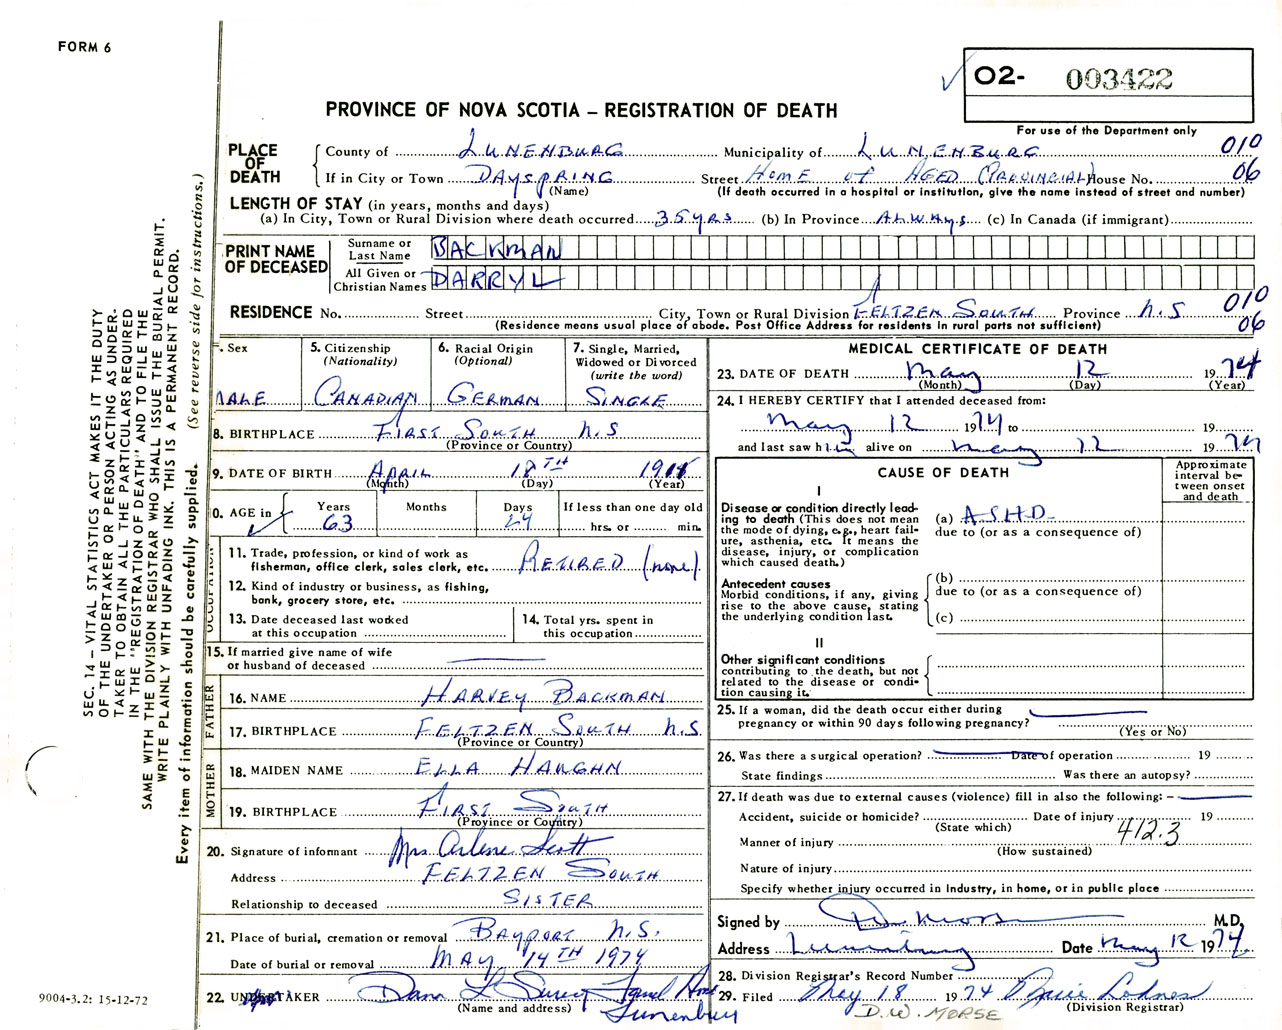 FORM 6
O2- 003422
PROVINCE OF NOVA SCOTIA – REGISTRATION OF DEATH
For use of the Department only
PLACE OF DEATH
County of LUNENBURG Municipality of LUNENBURG 010
If in City or Town DAYSPRING Street HOME OF AGED (PROVINCIAL) House No. 06
(Name) (If death occurred in a hospital or institution, give the name instead of street and number)
LENGTH OF STAY (in years, months and days)
(a) In City, Town or Rural Division where death occurred 35 yrs (b) In Province ALWAYS (c) In Canada (if immigrant)
PRINT NAME OF DECEASED
Surname or Last Name BACKMAN
All Given or Christian Names DARRYL
RESIDENCE No. Street City, Town or Rural Division FELTZEN SOUTH Province N.S 010 06
(Residence means usual place of abode. Post Office Address for residents in rural parts not sufficient)
. Sex
MALE
5. Citizenship (Nationality)
CANADIAN
6. Racial Origin (Optional)
GERMAN
7. Single, Married, Widowed or Divorced (write the word)
SINGLE
8. BIRTHPLACE FIRST SOUTH N.S
(Province or Country)
9. DATE OF BIRTH APRIL 18TH
(Month) (Day) (Year)
0. AGE in Years 63 Months Days 24 If less than one day old hrs. or min.
OCCUPATION
11. Trade, profession, or kind of work as
fisherman, office clerk, sales clerk, etc. RETIRED (none)
12. Kind of industry or business, as fishing,
bank, grocery store, etc.
13. Date deceased last worked
at this occupation
14. Total yrs. spent in
this occupation
15. If married give name of wife
or husband of deceased
FATHER
16. NAME HARVEY BACKMAN
17. BIRTHPLACE FELTZEN SOUTH N.S
(Province or Country)
MOTHER
18. MAIDEN NAME ELLA HAUGHN
19. BIRTHPLACE FIRST SOUTH
(Province or Country)
20. Signature of informant Mrs Arlene Scott
Address FELTZEN SOUTH
Relationship to deceased SISTER
21. Place of burial, cremation or removal BAYPORT N.S.
Date of burial or removal MAY 14TH 1974
22. UNDERTAKER Dana L Funeral Home
(Name and address) Lunenburg
MEDICAL CERTIFICATE OF DEATH
23. DATE OF DEATH May 12 1974
(Month) (Day) (Year)
24. I HEREBY CERTIFY that I attended deceased from:
May 12 1974 to 19
and last saw him alive on May 12 1974
CAUSE OF DEATH
Approximate interval between onset and death
I
Disease or condition directly lead-
ing to death (This does not mean
the mode of dying, e.g., heart fail-
ure, asthenia, etc. It means the
disease, injury, or complication
which caused death.)
(a) A.S.H.D.
due to (or as a consequence of)
Antecedent causes
Morbid conditions, if any, giving
rise to the above cause, stating
the underlying condition last.
(b)
due to (or as a consequence of)
(c)
II
Other significant conditions
contributing to the death, but not
related to the disease or condi-
tion causing it.
25. If a woman, did the death occur either during
pregnancy or within 90 days following pregnancy?
(Yes or No)
26. Was there a surgical operation? Date of operation 19
State findings Was there an autopsy?
27. If death was due to external causes (violence) fill in also the following: –
Accident, suicide or homicide? Date of injury 19
(State which)
412.3
Manner of injury
(How sustained)
Nature of injury
Specify whether injury occurred in Industry, in home, or in public place
Signed by D.W. Morse M.D.
Address Lunenburg Date May 12 1974
28. Division Registrar's Record Number
29. Filed May 18 1974
(Division Registrar)
D.W. MORSE
SEC. 14 – VITAL STATISTICS ACT MAKES IT THE DUTY
OF THE UNDERTAKER OR PERSON ACTING AS UNDER-
TAKER TO OBTAIN ALL THE PARTICULARS REQUIRED
IN THE "REGISTRATION OF DEATH" AND TO FILE THE
SAME WITH THE DIVISION REGISTRAR WHO SHALL ISSUE THE BURIAL PERMIT.
WRITE PLAINLY WITH UNFADING INK. THIS IS A PERMANENT RECORD.
Every item of information should be carefully supplied. (See reverse side for instructions.)
9004-3.2: 15-12-72